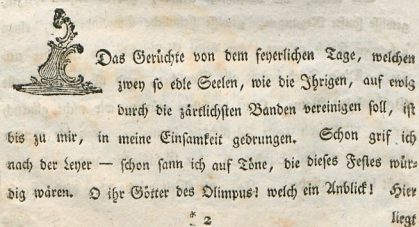 Das Gerüchte von dem feyerlichen Tage, welchen
zwey so edle Seelen, wie die Ihrigen, auf ewig
durch die zärtlichsten Banden vereinigen soll, ist
bis zu mir, in meine Einsamkeit gedrungen. Schon grif ich
nach der Leyer — schon sann ich auf Töne, die dieses Festes wür-
dig wären. O ihr Götter des Olimpus! welch ein Anblick! Hier
* 2 liegt